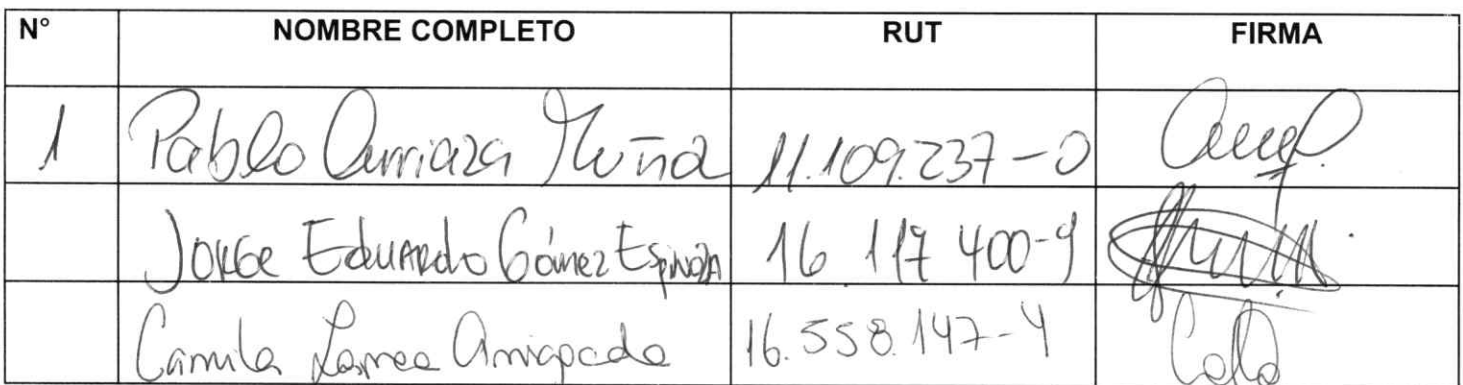 N° NOMBRE COMPLETO RUT FIRMA
1 Pablo Arriaza Muñoz 11.109.237-0
Jorge Eduardo Gómez Espinoza 16 117 400-9
Camila Larrea 16.558.147-4